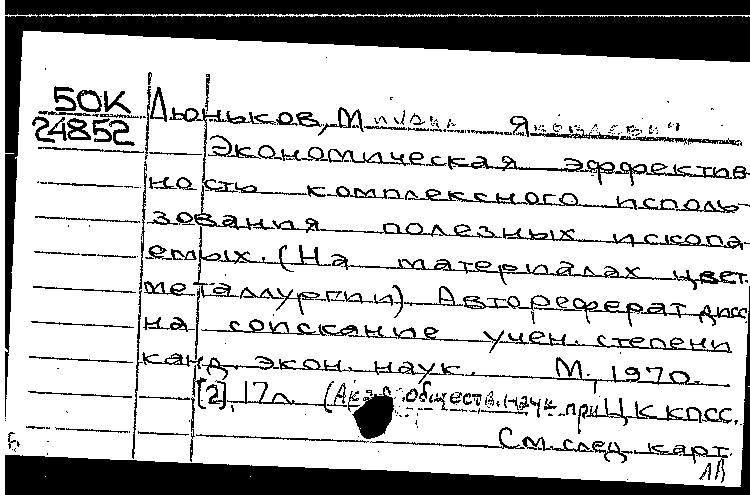 50К
24852
Люньков, Михаил Яковлевич
Экономическая эффектив
ность комплексного исполь-
зования полезных ископа
емых. (На материалах цвет.
металлургии). Автореферат дисс
на соискание учен. степени
канд. экон. наук. М., 1970.
[2], 17л. (Акад. обществ. наук при ЦК КПСС.
См. след. карт.